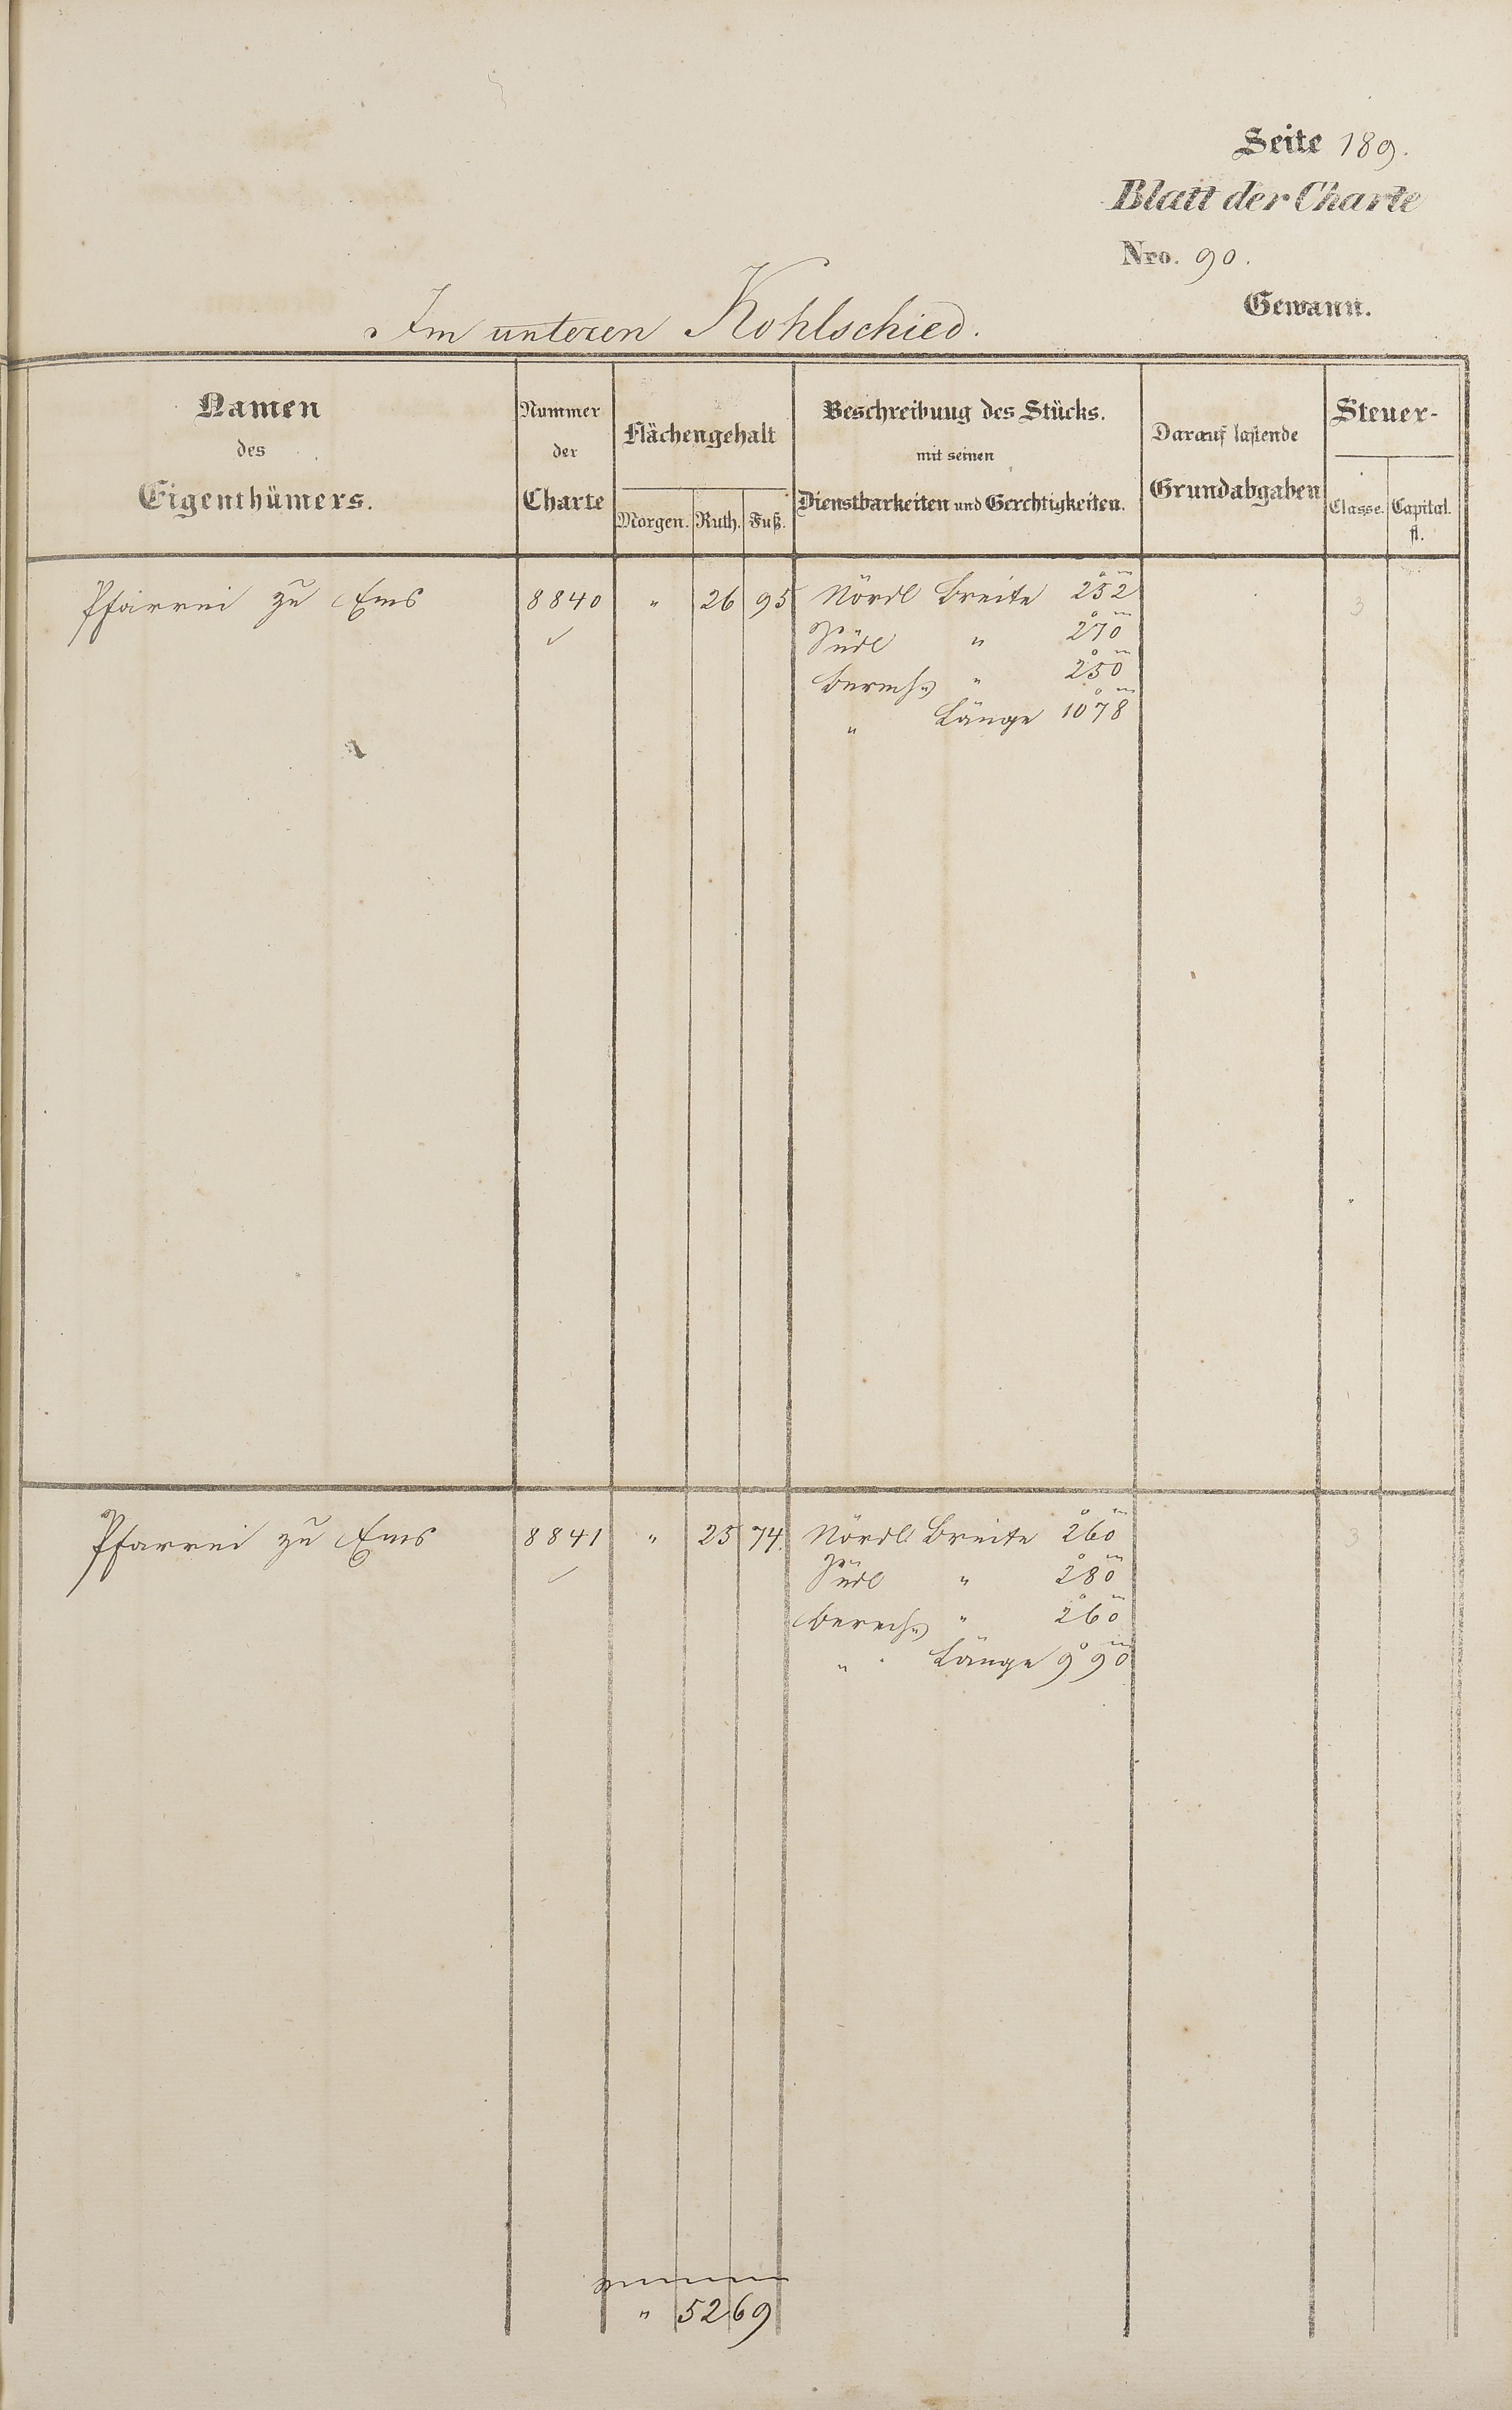 Seite 189.
Blatt der Charte
Nro. 90.
Gewann.
Im unteren Kohlschied.
Namen
des
Eigenthümers.
Nummer
der
Charte
Flächengehalt
Morgen. Ruth. Fuß.
Beschreibung des Stücks.
mit seinen
Dienstbarkeiten und Gerechtigkeiten.
Darauf lastende
Grundabgaben
Steuer-
Classe. Capital.
fl.
Pfarrei zu Ems 8840 " 26 95 Nördl Breite 2° 52''' 3
✓ Südl " 2° 70'''
berech " 2° 50'''
" Länge 10° 78'''
Pfarrei zu Ems 8841 " 25 74. Nördl Breite 2° 60''' 3
✓ Südl " 2° 80'''
berech " 2° 60'''
" Länge 9° 90'''
" 52 69